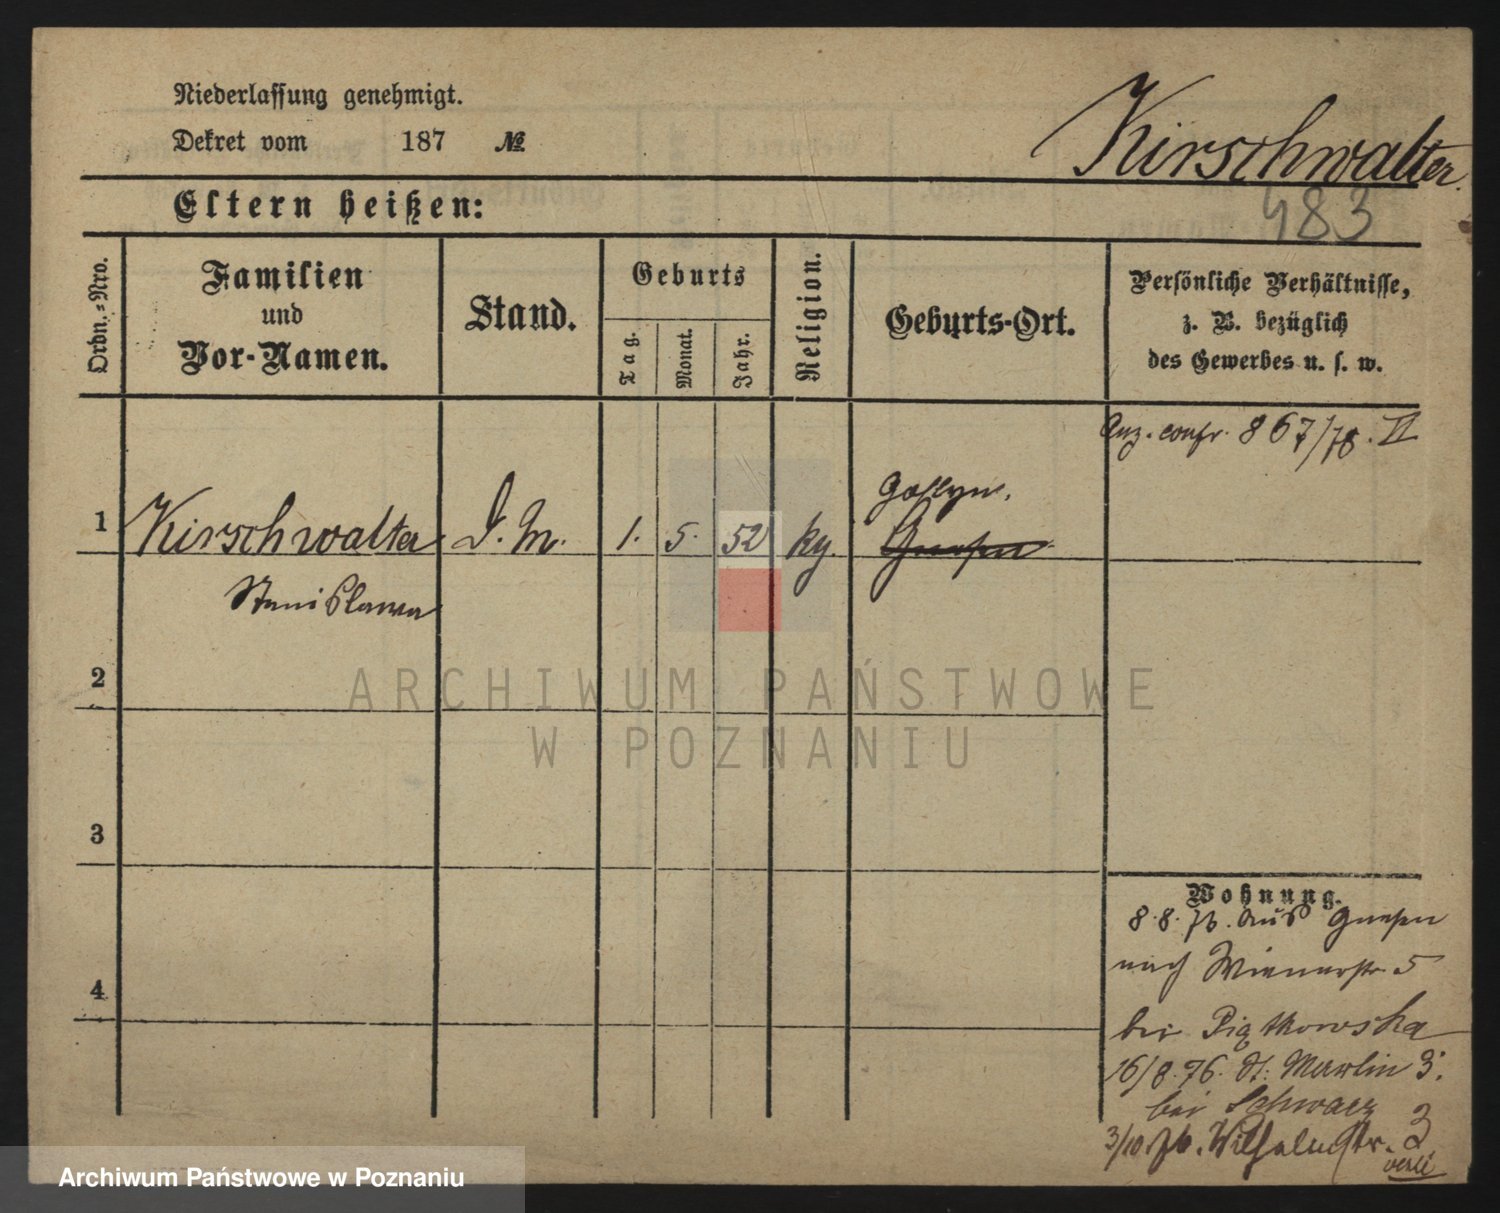 Niederlassung genehmigt.
Dekret vom 187 №
Kirschwalter
483
Eltern heißen:
Ordn.-Nro.
Familien
und
Vor-Namen.
Stand.
Geburts
Tag.
Monat.
Jahr.
Religion.
Geburts-Ort.
Persönliche Verhältnisse,
z. B. bezüglich
des Gewerbes u. s. w.
Anz. confr. 867/78. VI
Gostyn.
1 Kirschwalter D. M. 1. 5. 52 kg. Gnesen
Stanislawa
2
3
4
Wohnung.
8.8.76. aus Gnesen
nach Wienerstr. 5
bei Piątkowska
16/8.76. St: Martin 3.
bei Schwarz
3/10.76. Wilhelmstr. 3
ARCHIWUM PAŃSTWOWE
W POZNANIU
Archiwum Państwowe w Poznaniu